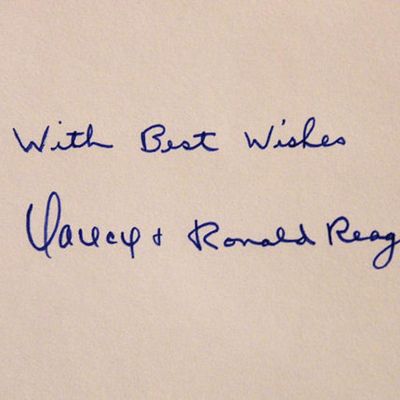 With Best Wishes
Nancy & Ronald Reag